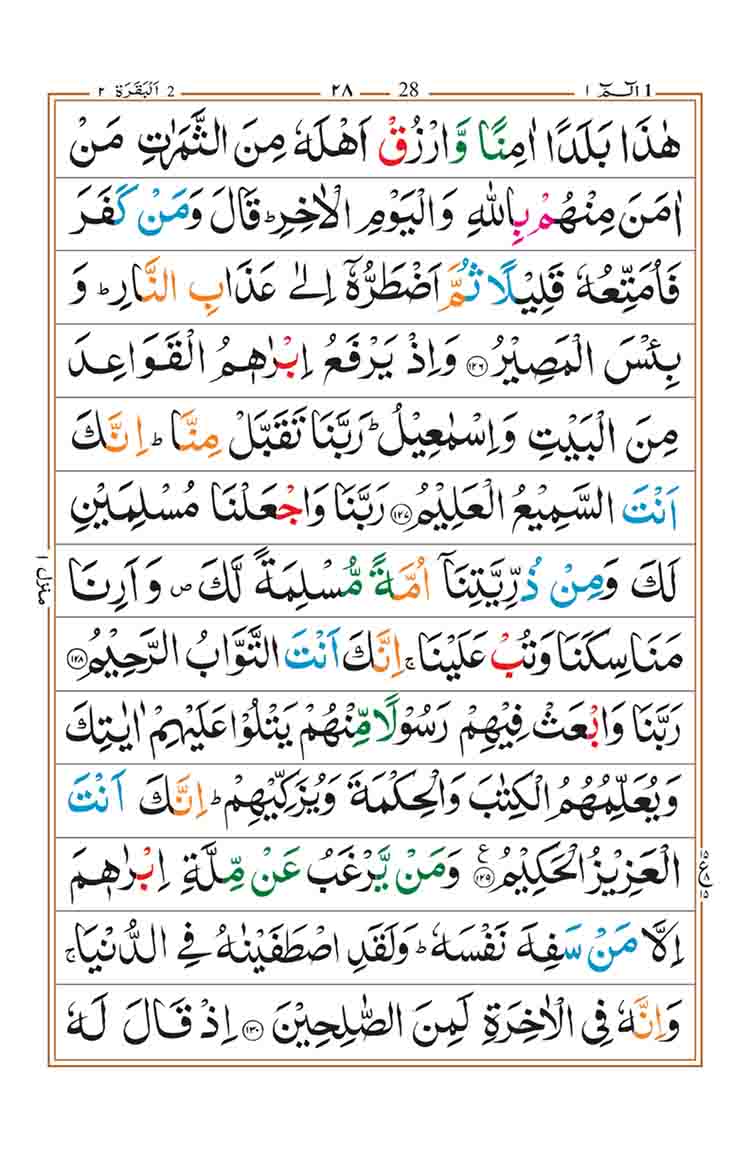 الٓـمّٓ ١ 1 28 ٢٨ 2 اَلْبَقَرَة ٢
هٰذَا بَلَدًا اٰمِنًا وَّارْزُقْ اَهْلَهٗ مِنَ الثَّمَرٰتِ مَنْ
اٰمَنَ مِنْهُمْ بِاللّٰهِ وَالْيَوْمِ الْاٰخِرِؕ قَالَ وَمَنْ كَفَرَ
فَاُمَتِّعُهٗ قَلِيْلًا ثُمَّ اَضْطَرُّهٗۤ اِلٰى عَذَابِ النَّارِؕ وَ
بِئْسَ الْمَصِيْرُ ۝١٢٦ وَاِذْ يَرْفَعُ اِبْرٰهٖمُ الْقَوَاعِدَ
مِنَ الْبَيْتِ وَاِسْمٰعِيْلُؕ رَبَّنَا تَقَبَّلْ مِنَّاؕ اِنَّكَ
اَنْتَ السَّمِيْعُ الْعَلِيْمُ ۝١٢٧ رَبَّنَا وَاجْعَلْنَا مُسْلِمَيْنِ
لَكَ وَمِنْ ذُرِّيَّتِنَاۤ اُمَّةً مُّسْلِمَةً لَّكَ ص وَاَرِنَا
مَنَاسِكَنَا وَتُبْ عَلَيْنَاۚ اِنَّكَ اَنْتَ التَّوَّابُ الرَّحِيْمُ ۝١٢٨
رَبَّنَا وَابْعَثْ فِيْهِمْ رَسُوْلًا مِّنْهُمْ يَتْلُوْا عَلَيْهِمْ اٰيٰتِكَ
وَيُعَلِّمُهُمُ الْكِتٰبَ وَالْحِكْمَةَ وَيُزَكِّيْهِمْؕ اِنَّكَ اَنْتَ
الْعَزِيْزُ الْحَكِيْمُ ۝١٢٥ ع وَمَنْ يَّرْغَبُ عَنْ مِّلَّةِ اِبْرٰهٖمَ
اِلَّا مَنْ سَفِهَ نَفْسَهٗؕ وَلَقَدِ اصْطَفَيْنٰهُ فِى الدُّنْيَاۚ
وَاِنَّهٗ فِى الْاٰخِرَةِ لَمِنَ الصّٰلِحِيْنَ ۝١٣٠ اِذْ قَالَ لَهٗ
منزل ١